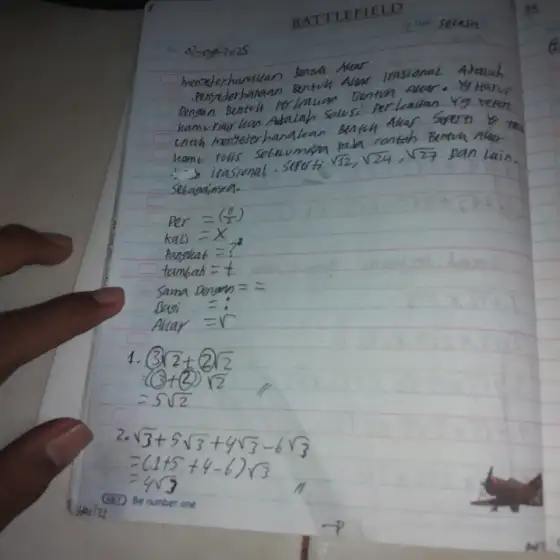 BATTLEFIELD
Selasa
02-09-2025
menyederhanakan bentuk Akar
Penyederhanaan Bentuk Akar irasional Adalah
Dengan Bentuk Perkalian Bentuk Akar. Yg Harus
kamu Pikirkan Adalah Solusi Perkalian Yg
untuk menyederhanakan Bentuk Akar Seperti Yg
kamu tulis Sebelumnya pada contoh Bentuk Akar
irasional. Seperti √12, √24, √27 Dan Lain-
Sebagainya.
Per =
kali = X
Pangkat = ?²
tambah = +
Sama Dengan = =
Bagi = :
Akar = √
1. 3√2 + 2√2
= (3+2) √2 //
= 5√2
2. √3 + 5√3 + 4√3 - 6√3
= (1+5+4-6)√3
= 4√3 //
KEY Be number one